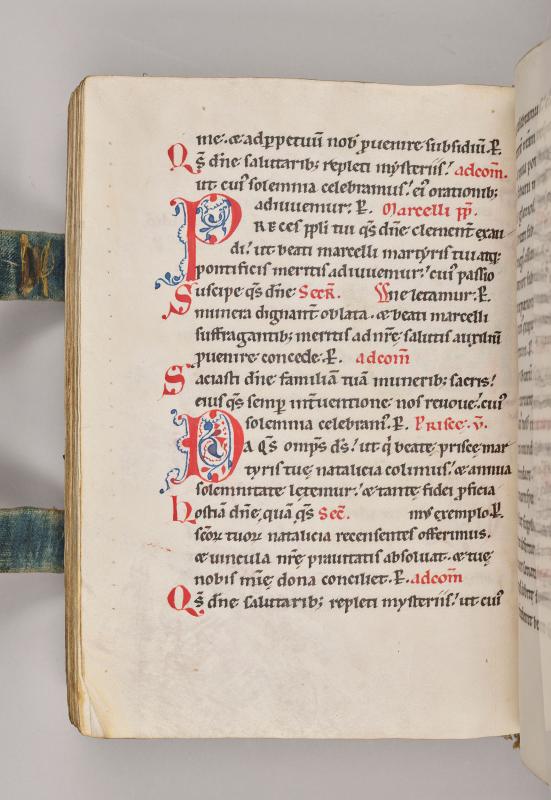 me. & ad p̱petuū nob̄ p̱uenire subsidiū. P̱.
Qs̄ dn̄e salutarib; repleti mẏsteriis! adcom̄.
ut cuiꝰ solemnia celebramus! eiꝰ orationib;
adiuuemur. P̱. Marcelli pp̄.
PReces ppl̄i tui qs̄ dn̄e clement̄ exau
di! ut beati marcelli martẏris tui atq;
pontificis meritis adiuuemur! cuiꝰ passio
Suscipe qs̄ dn̄e Secr̄. ne letamur. P̱.
munera dignant̄ oblata. & beati marcelli
suffragantib; meritis ad nr̄ę salutis auxiliū
p̱uenire concede. P̱. adcom̄
Saciasti dn̄e familiā tuā munerib; sacris!
eius qs̄ semp̱ int̄uentione nos reuoue! cuiꝰ
solemnia celebram̄. P̱. Priscę. v̄.
DA qs̄ omps̄ ds̄! ut q̄ beatę priscę mar
tẏris tuę natalicia colimus! & annua
solemnitate lętemur! & tantę fidei p̱ficia
hostiā dn̄e, quā qs̄ Sec̄. mꝰ exemplo. P̱.
sc̄oꝝ tuoꝝ natalicia recensentes offerimus.
& uincula nr̄ę prauitatis absoluat. & tuę
nobis mīę dona conciliet. P̱. adcom̄
Qs̄ dn̄e salutarib; repleti mẏsteriis! ut cuiꝰ